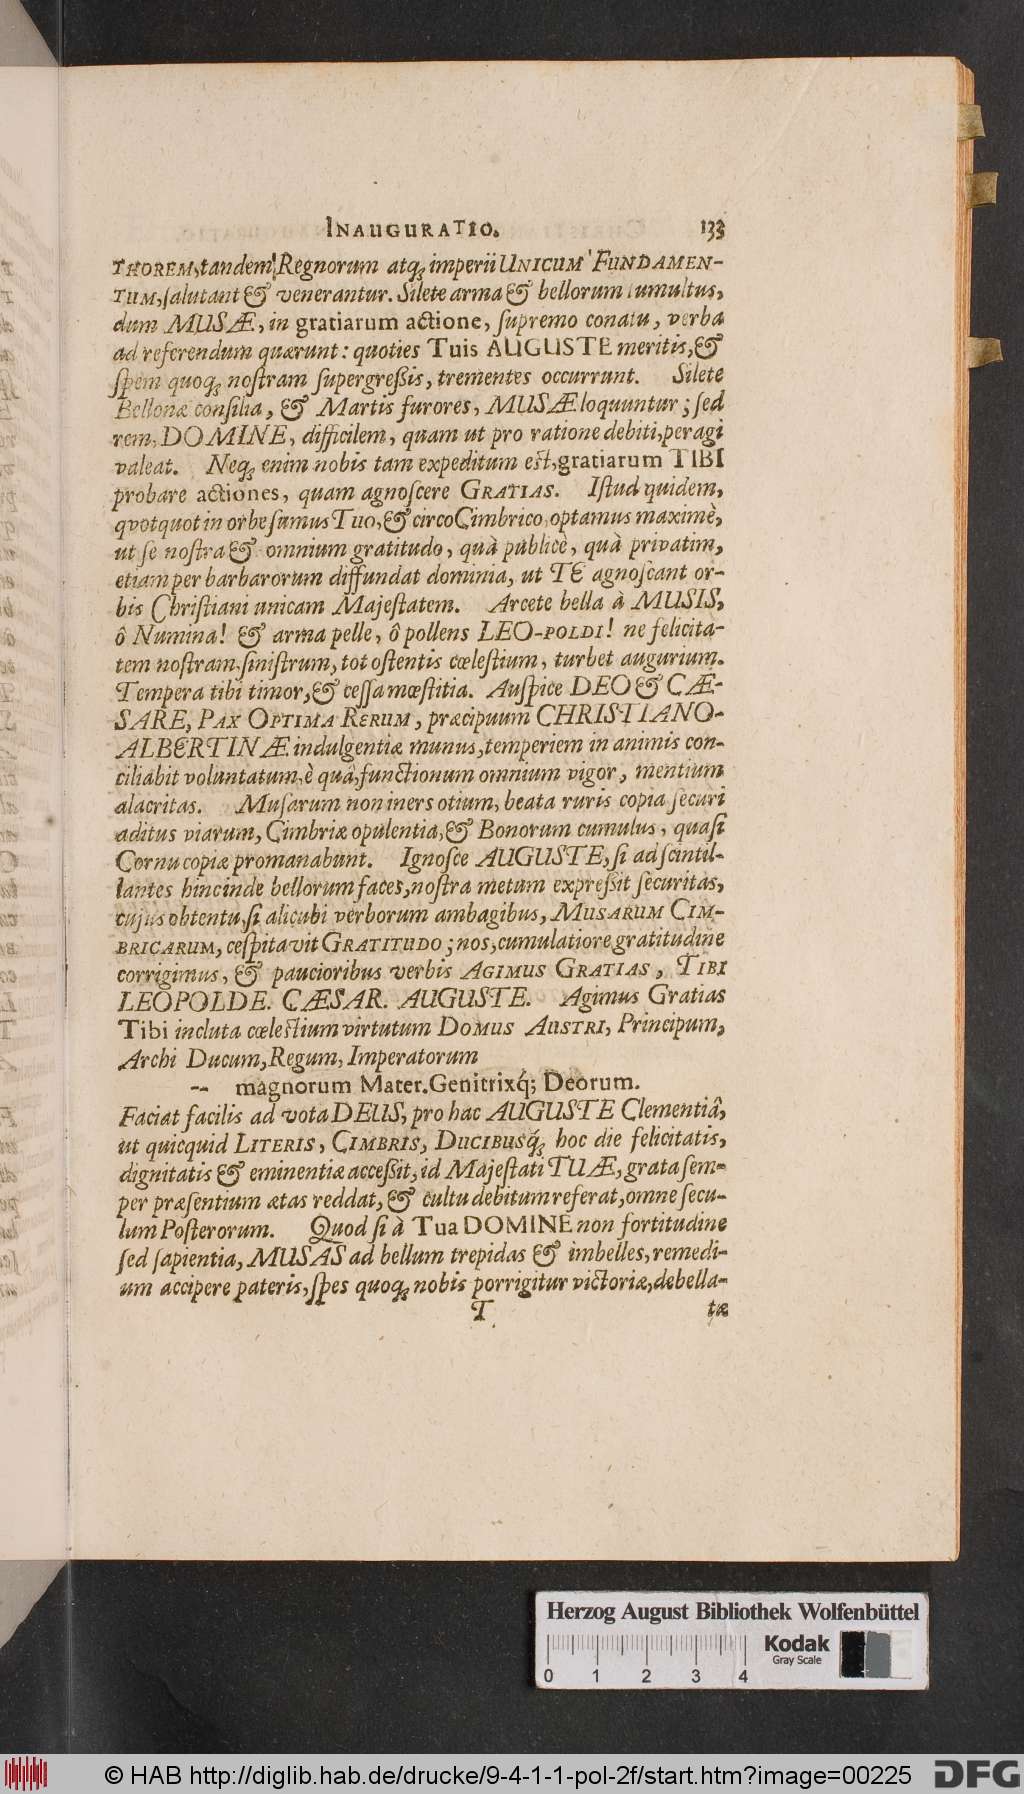 INAUGURATIO. 133
THOREM, tandem Regnorum atq; imperii UNICUM FUNDAMEN-
TUM, ſalutant & venerantur. Silete arma & bellorum tumultus,
dum MUSÆ, in gratiarum actione, ſupremo conatu, verba
ad referendum quærunt: quoties Tuis AUGUSTE meritis, &
ſpem quoq; noſtram ſupergreßis, trementes occurrunt. Silete
Bellonæ conſilia, & Martis furores, MUSÆ loquuntur; ſed
rem, DOMINE, difficilem, quam ut pro ratione debiti, peragi
valeat. Neq; enim nobis tam expeditum est, gratiarum TIBI
probare actiones, quam agnoſcere GRATIAS. Iſtud quidem,
qvotquot in orbe ſumus TUO, & circo Cimbrico, optamus maximè,
ut ſe noſtra & omnium gratitudo, quà publicè, quà privatim,
etiam per barbarorum diffundat dominia, ut TE agnoſcant or-
bis Chriſtiani unicam Majeſtatem. Arcete bella à MUSIS,
ô Numina! & arma pelle, ô pollens LEO-POLDI! ne felicita-
tem noſtram, ſiniſtrum, tot oſtentis cœleſtium, turbet augurium.
Tempera tibi timor, & ceſſa mœſtitia. Auſpice DEO & CÆ-
SARE, PAX OPTIMA RERUM, præcipuum CHRISTIANO-
ALBERTINÆ indulgentiæ munus, temperiem in animis con-
ciliabit voluntatum, è quâ, functionum omnium vigor, mentium
alacritas. Muſarum non iners otium, beata ruris copia ſecuri
aditus viarum, Cimbriæ opulentia, & Bonorum cumulus, quaſi
Cornu copiæ promanabunt. Ignoſce AUGUSTE, ſi ad ſcintil-
lantes hincinde bellorum faces, noſtra metum expreßit ſecuritas,
cujus obtentu, ſi alicubi verborum ambagibus, MUSARUM CIM-
BRICARUM, ceſpitavit GRATITUDO; nos, cumulatiore gratitudine
corrigimus, & paucioribus verbis AGIMUS GRATIAS, TIBI
LEOPOLDE. CÆSAR. AUGUSTE. Agimus Gratias
Tibi incluta cœlectium virtutum DOMUS AUSTRI, Principum,
Archi Ducum, Regum, Imperatorum
-- magnorum Mater. Genitrixq́; Deorum.
Faciat facilis ad vota DEUS, pro hac AUGUSTE Clementiâ,
ut quicquid LITERIS, CIMBRIS, DUCIBUSq́; hoc die felicitatis,
dignitatis & eminentiæ acceßit, id Majeſtati TUÆ, grata ſem-
per præſentium ætas reddat, & cultu debitum referat, omne ſecu-
lum Poſterorum. Quod ſi à Tua DOMINE non fortitudine
ſed ſapientia, MUSAS ad bellum trepidas & imbelles, remedi-
um accipere pateris, ſpes quoq; nobis porrigitur victoriæ, debella-
T tæ
Herzog August Bibliothek Wolfenbüttel
Kodak
Gray Scale
0 1 2 3 4
© HAB http://diglib.hab.de/drucke/9-4-1-1-pol-2f/start.htm?image=00225 DFG